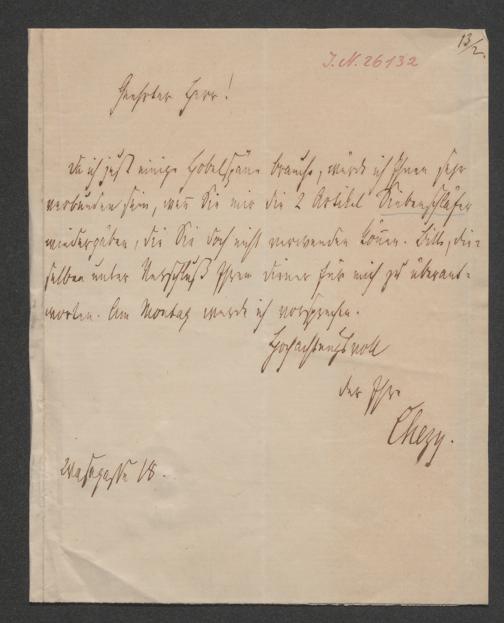 13/2.
I.N. 26132
Geehrter Herr!
Da ich jetzt einige Hobelspäne brauche, würde ich Ihnen sehr
verbunden sein, wenn Sie mir die 2 Artikel Siebenschläfer
wiedergäben, die Sie doch nicht verwenden können. Bitte, die-
selben unter Verschluß Ihrem Diener für mich zu überant-
worten. Am Montag werde ich vorsprechen.
Hochachtungsvoll
der Ihre
Chezy.
Wasagasse 18.